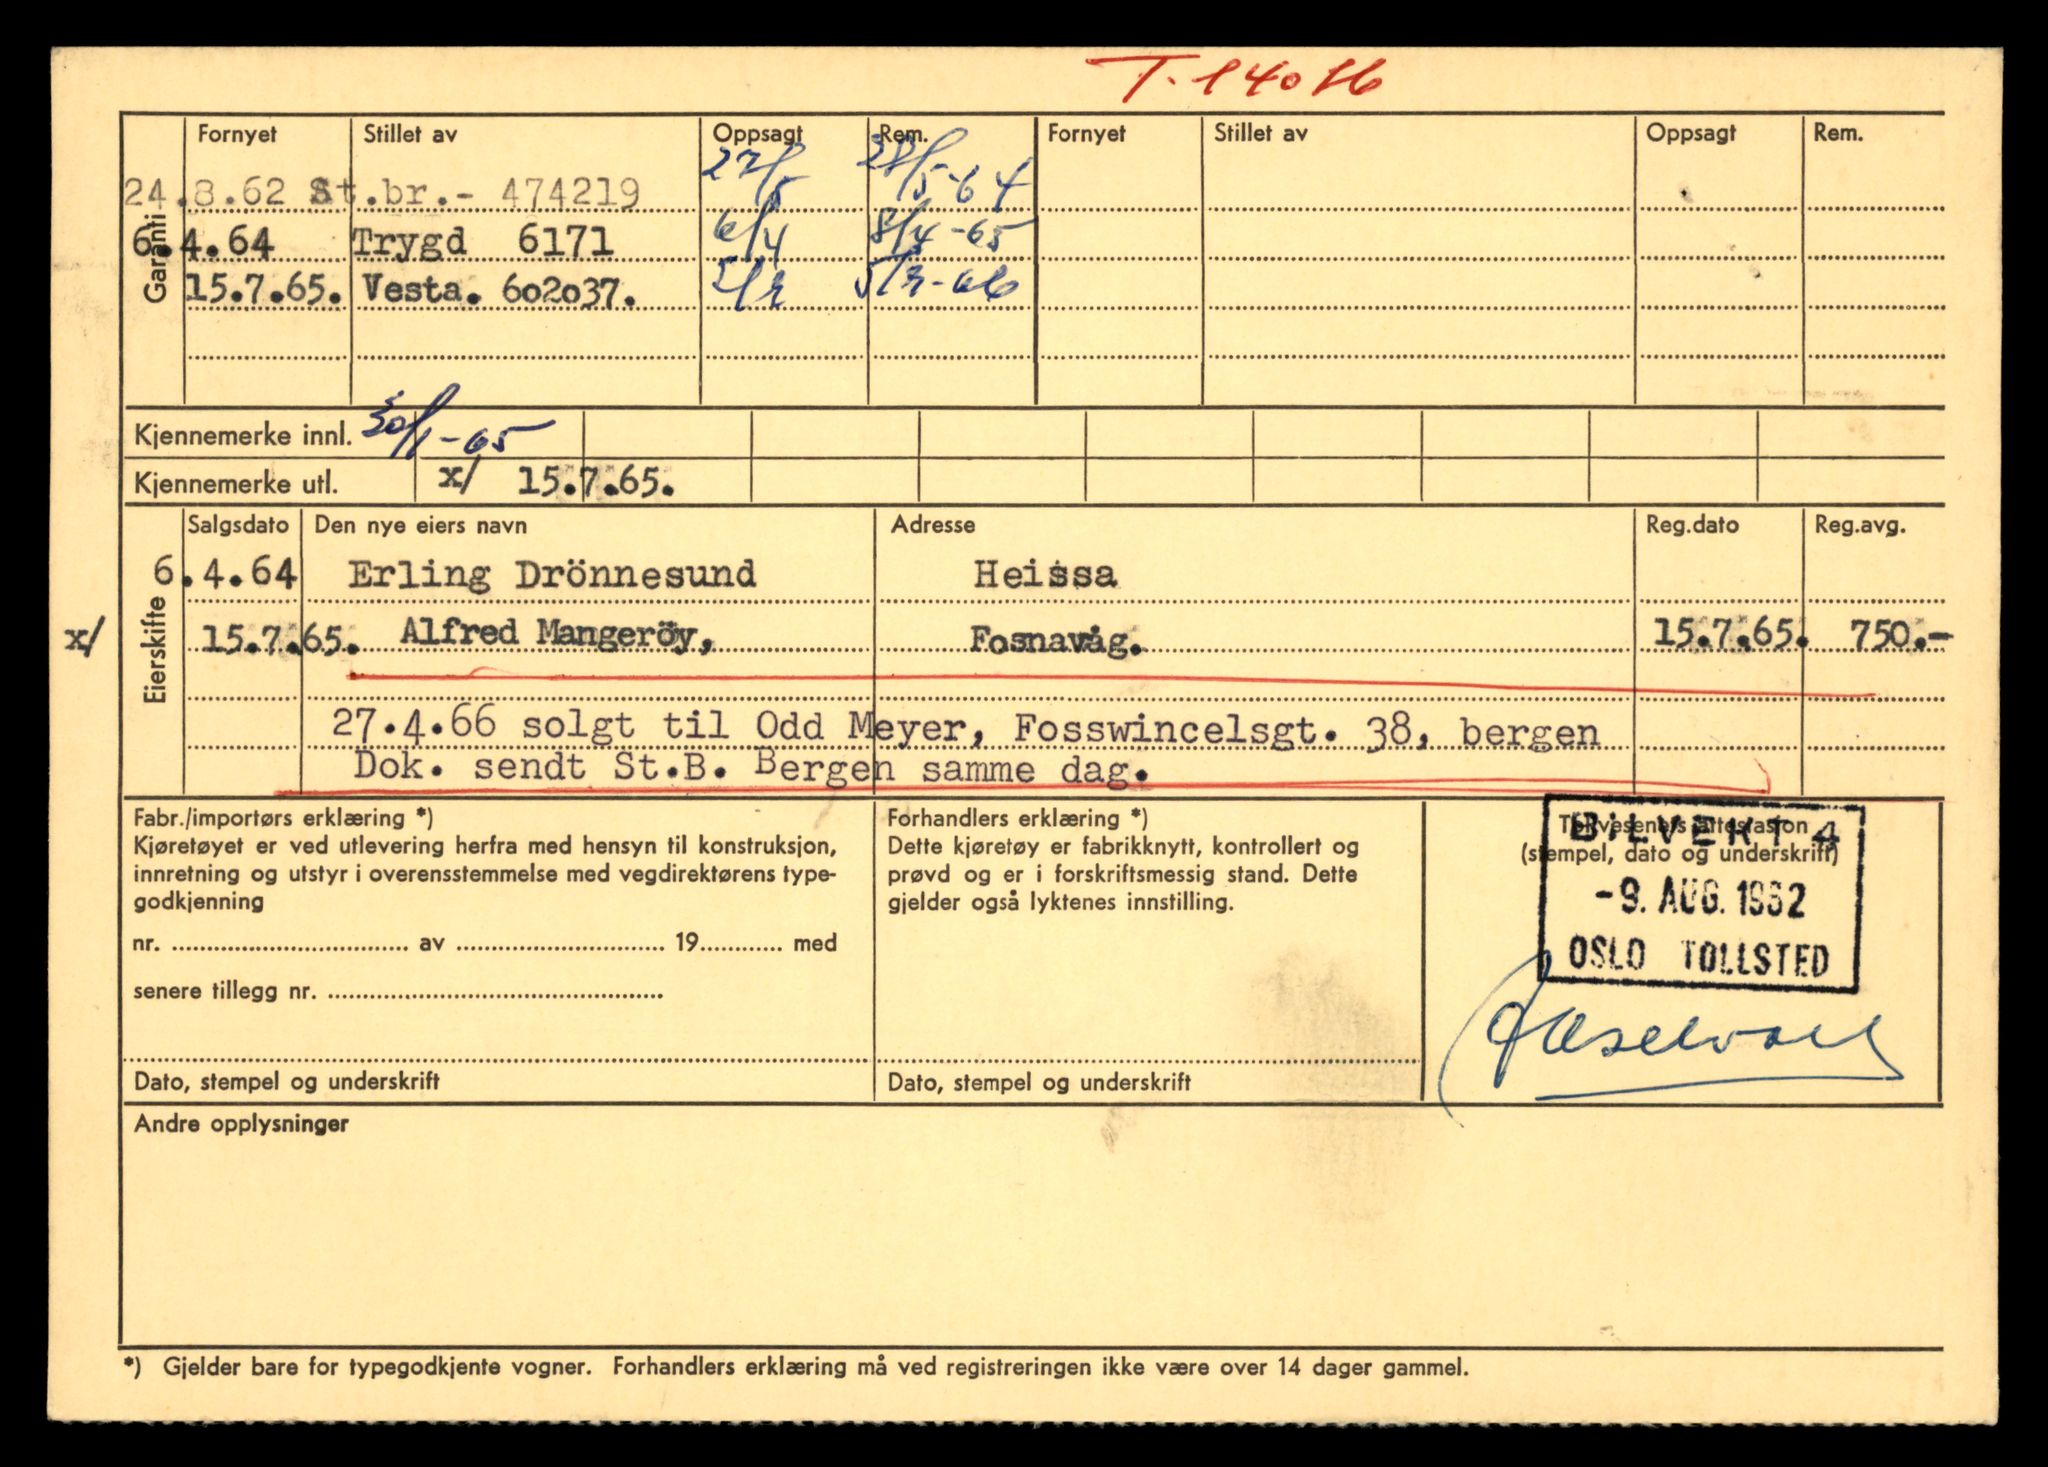 T-14016
Fornyet Stillet av Oppsagt Rem. Fornyet Stillet av Oppsagt Rem.
Garanti
24.8.62 St.br.- 474219 27/5 28/5-64
6.4.64 Trygd 6171 6/4 8/4-65
15.7.65. Vesta. 602037. 5/3-66
Kjennemerke innl. 30/1-65
Kjennemerke utl. x/ 15.7.65.
Eierskifte
Salgsdato Den nye eiers navn Adresse Reg.dato Reg.avg.
6.4.64 Erling Drönnesund Heissa
x/ 15.7.65. Alfred Mangeröy, Fosnavåg. 15.7.65. 750.-
27.4.66 solgt til Odd Meyer, Fosswincelsgt. 38, bergen
Dok. sendt St.B. Bergen samme dag.
Fabr./importørs erklæring *)
Kjøretøyet er ved utlevering herfra med hensyn til konstruksjon,
innretning og utstyr i overensstemmelse med vegdirektørens type-
godkjenning
nr. .......... av .......... 19.......... med
senere tillegg nr. ..........
Dato, stempel og underskrift
Forhandlers erklæring *)
Dette kjøretøy er fabrikknytt, kontrollert og
prøvd og er i forskriftsmessig stand. Dette
gjelder også lyktenes innstilling.
Dato, stempel og underskrift
Tollvesenets attestasjon
(stempel, dato og underskrift)
BILVEKT 4
-9. AUG. 1962
OSLO TOLLSTED
Andre opplysninger
*) Gjelder bare for typegodkjente vogner. Forhandlers erklæring må ved registreringen ikke være over 14 dager gammel.